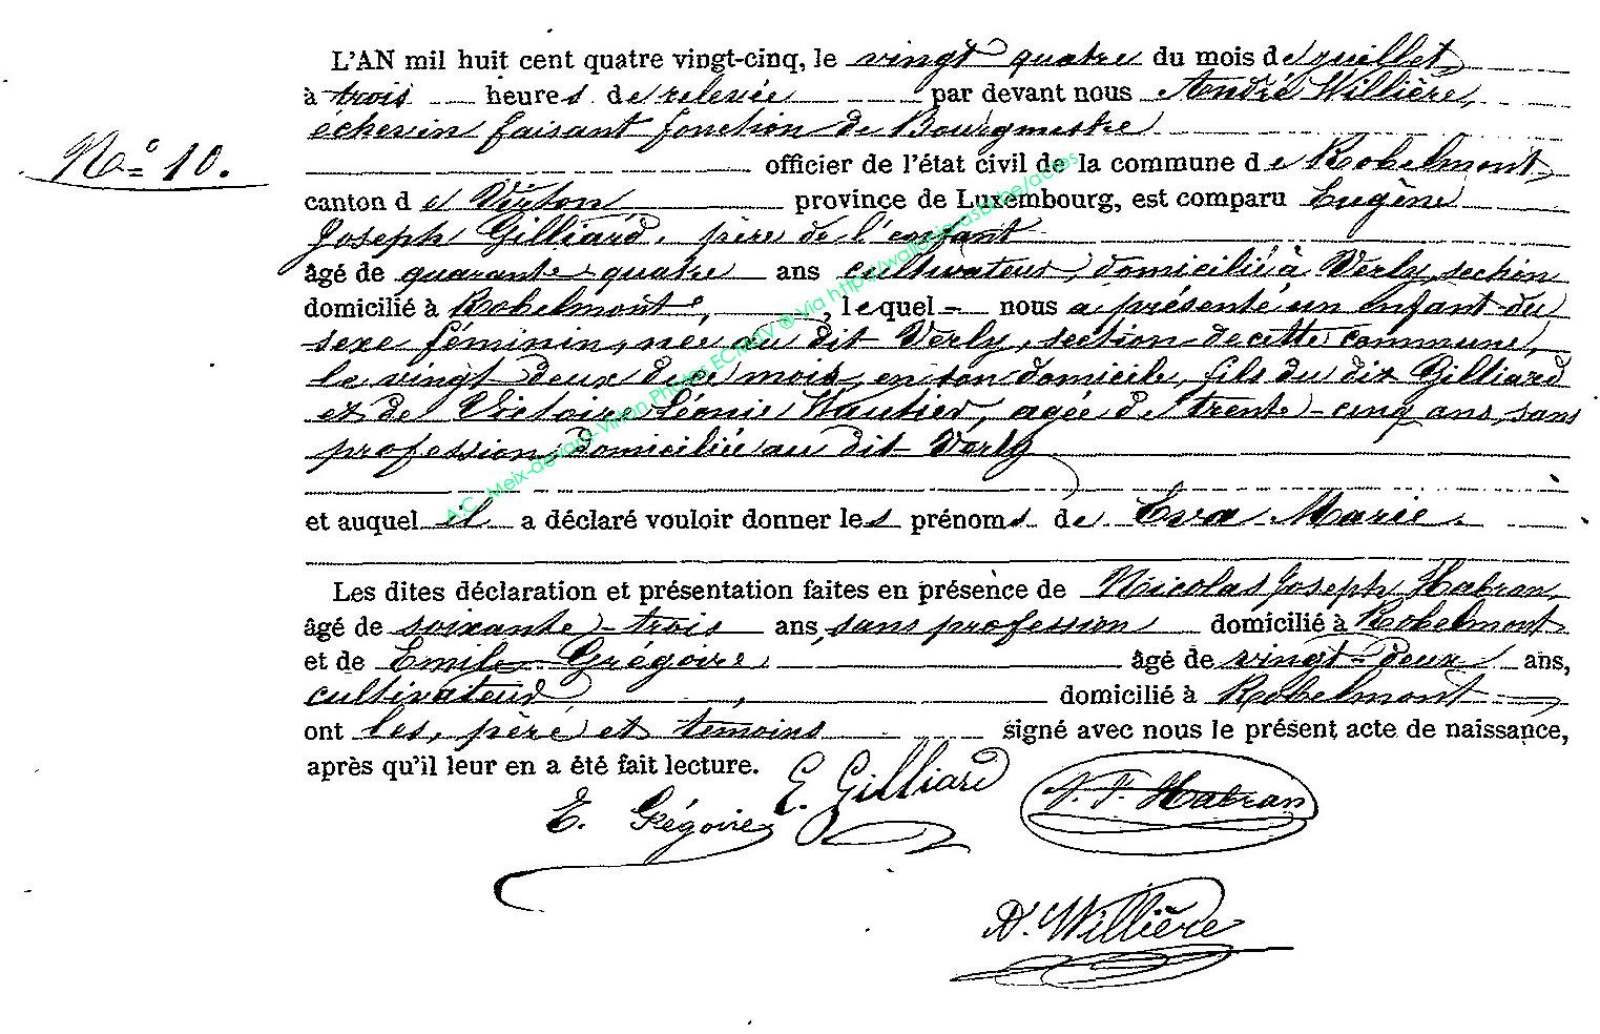 L'AN mil huit cent quatre vingt-cinq, le vingt quatre du mois de juillet
à trois heures de relevée par devant nous André Willière,
échevin faisant fonction de Bourgmestre
N° 10.
officier de l'état civil de la commune de Robelmont
canton de Virton province de Luxembourg, est comparu Eugène
Joseph Gilliard, père de l'enfant
âgé de quarante-quatre ans cultivateur, domicilié à Verly, section
domicilié à Robelmont, lequel nous a présenté un enfant du
sexe féminin, née au dit Verly, section de cette commune,
le vingt deux de ce mois, en son domicile, fils du dit Gilliard
et de Victoire Léonie Wautier, agée de trente-cinq ans, sans
profession, domiciliée au dit Verly
et auquel il a déclaré vouloir donner les prénoms de Eva Marie.
Les dites déclaration et présentation faites en présence de Nicolas Joseph Habran,
âgé de soixante-trois ans, sans profession domicilié à Robelmont
et de Emile Grégoire, âgé de vingt-deux ans,
cultivateur, domicilié à Robelmont
ont les, père et témoins signé avec nous le présent acte de naissance,
après qu'il leur en a été fait lecture.
E. Grégoire E. Gilliard N. J. Habran
A. Willière
A.C. Meix-devant-Virton Photos ECMDV @ Via http://wallonia-asbl.be/actes